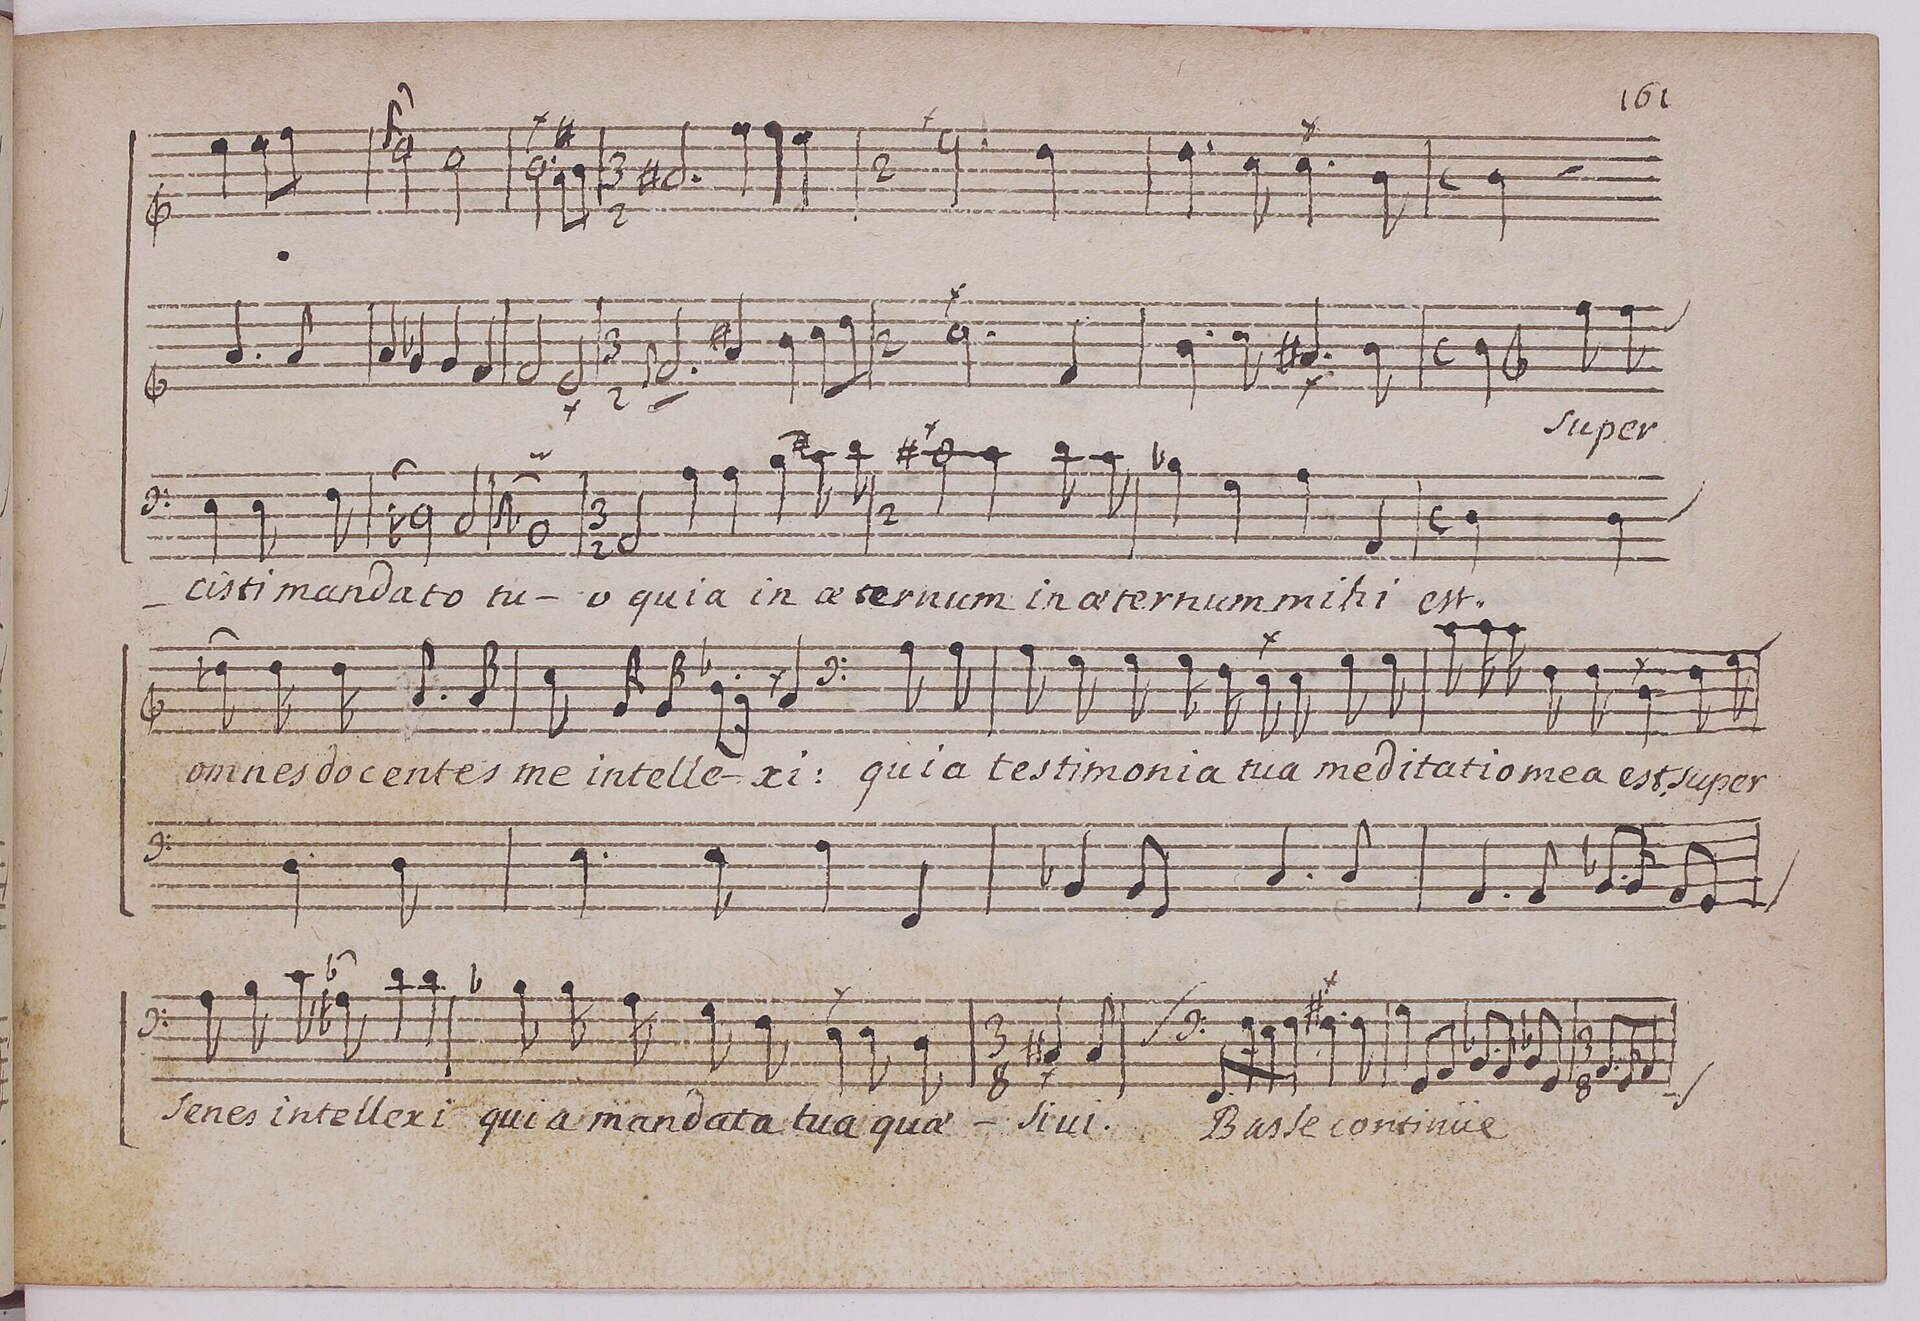 161
super
_ cisti mandato tu - o quia in æternum in æternum mihi est.
omnes docentes me intelle - xi : quia testimonia tua meditatio mea est, super
senes intellexi quia mandata tua quæ - siui. Basse continüe